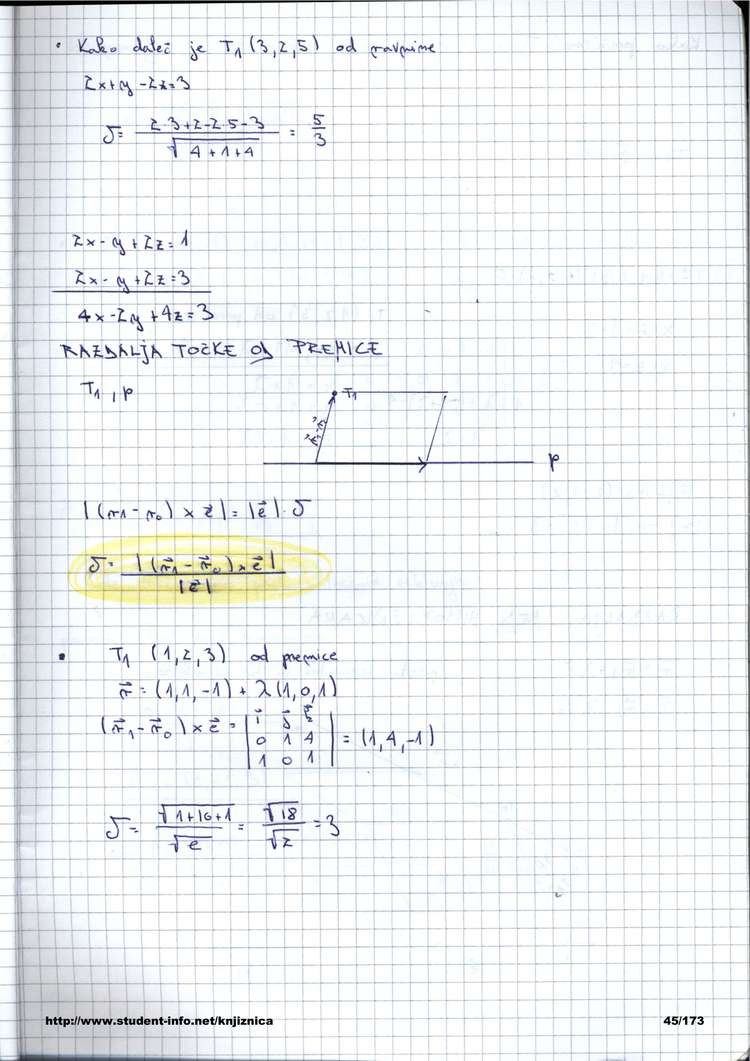 • Kako daleč je T₁ (3,2,5) od ravnine
2x+y-2z=3
δ= (2·3+2-2·5-3)/√(4+1+4) = 5/3
2x-y+2z=1
2x-y+2z=3
4x-2y+4z=3
RAZDALJA TOČKE OD PREMICE
T₁, p
T₁
p
|(r₁-r₀) × e⃗| = |e⃗|·δ
δ= |(r⃗₁-r⃗₀)×e⃗| / |e⃗|
• T₁ (1,2,3) od premice
r⃗=(1,1,-1)+λ(1,0,1)
(r⃗₁-r⃗₀)×e⃗ = | i⃗ j⃗ k⃗ |
| 0 1 4 | = (1,4,-1)
| 1 0 1 |
δ= √(1+16+1)/√e = √18/√2 = 3
http://www.student-info.net/knjiznica 45/173